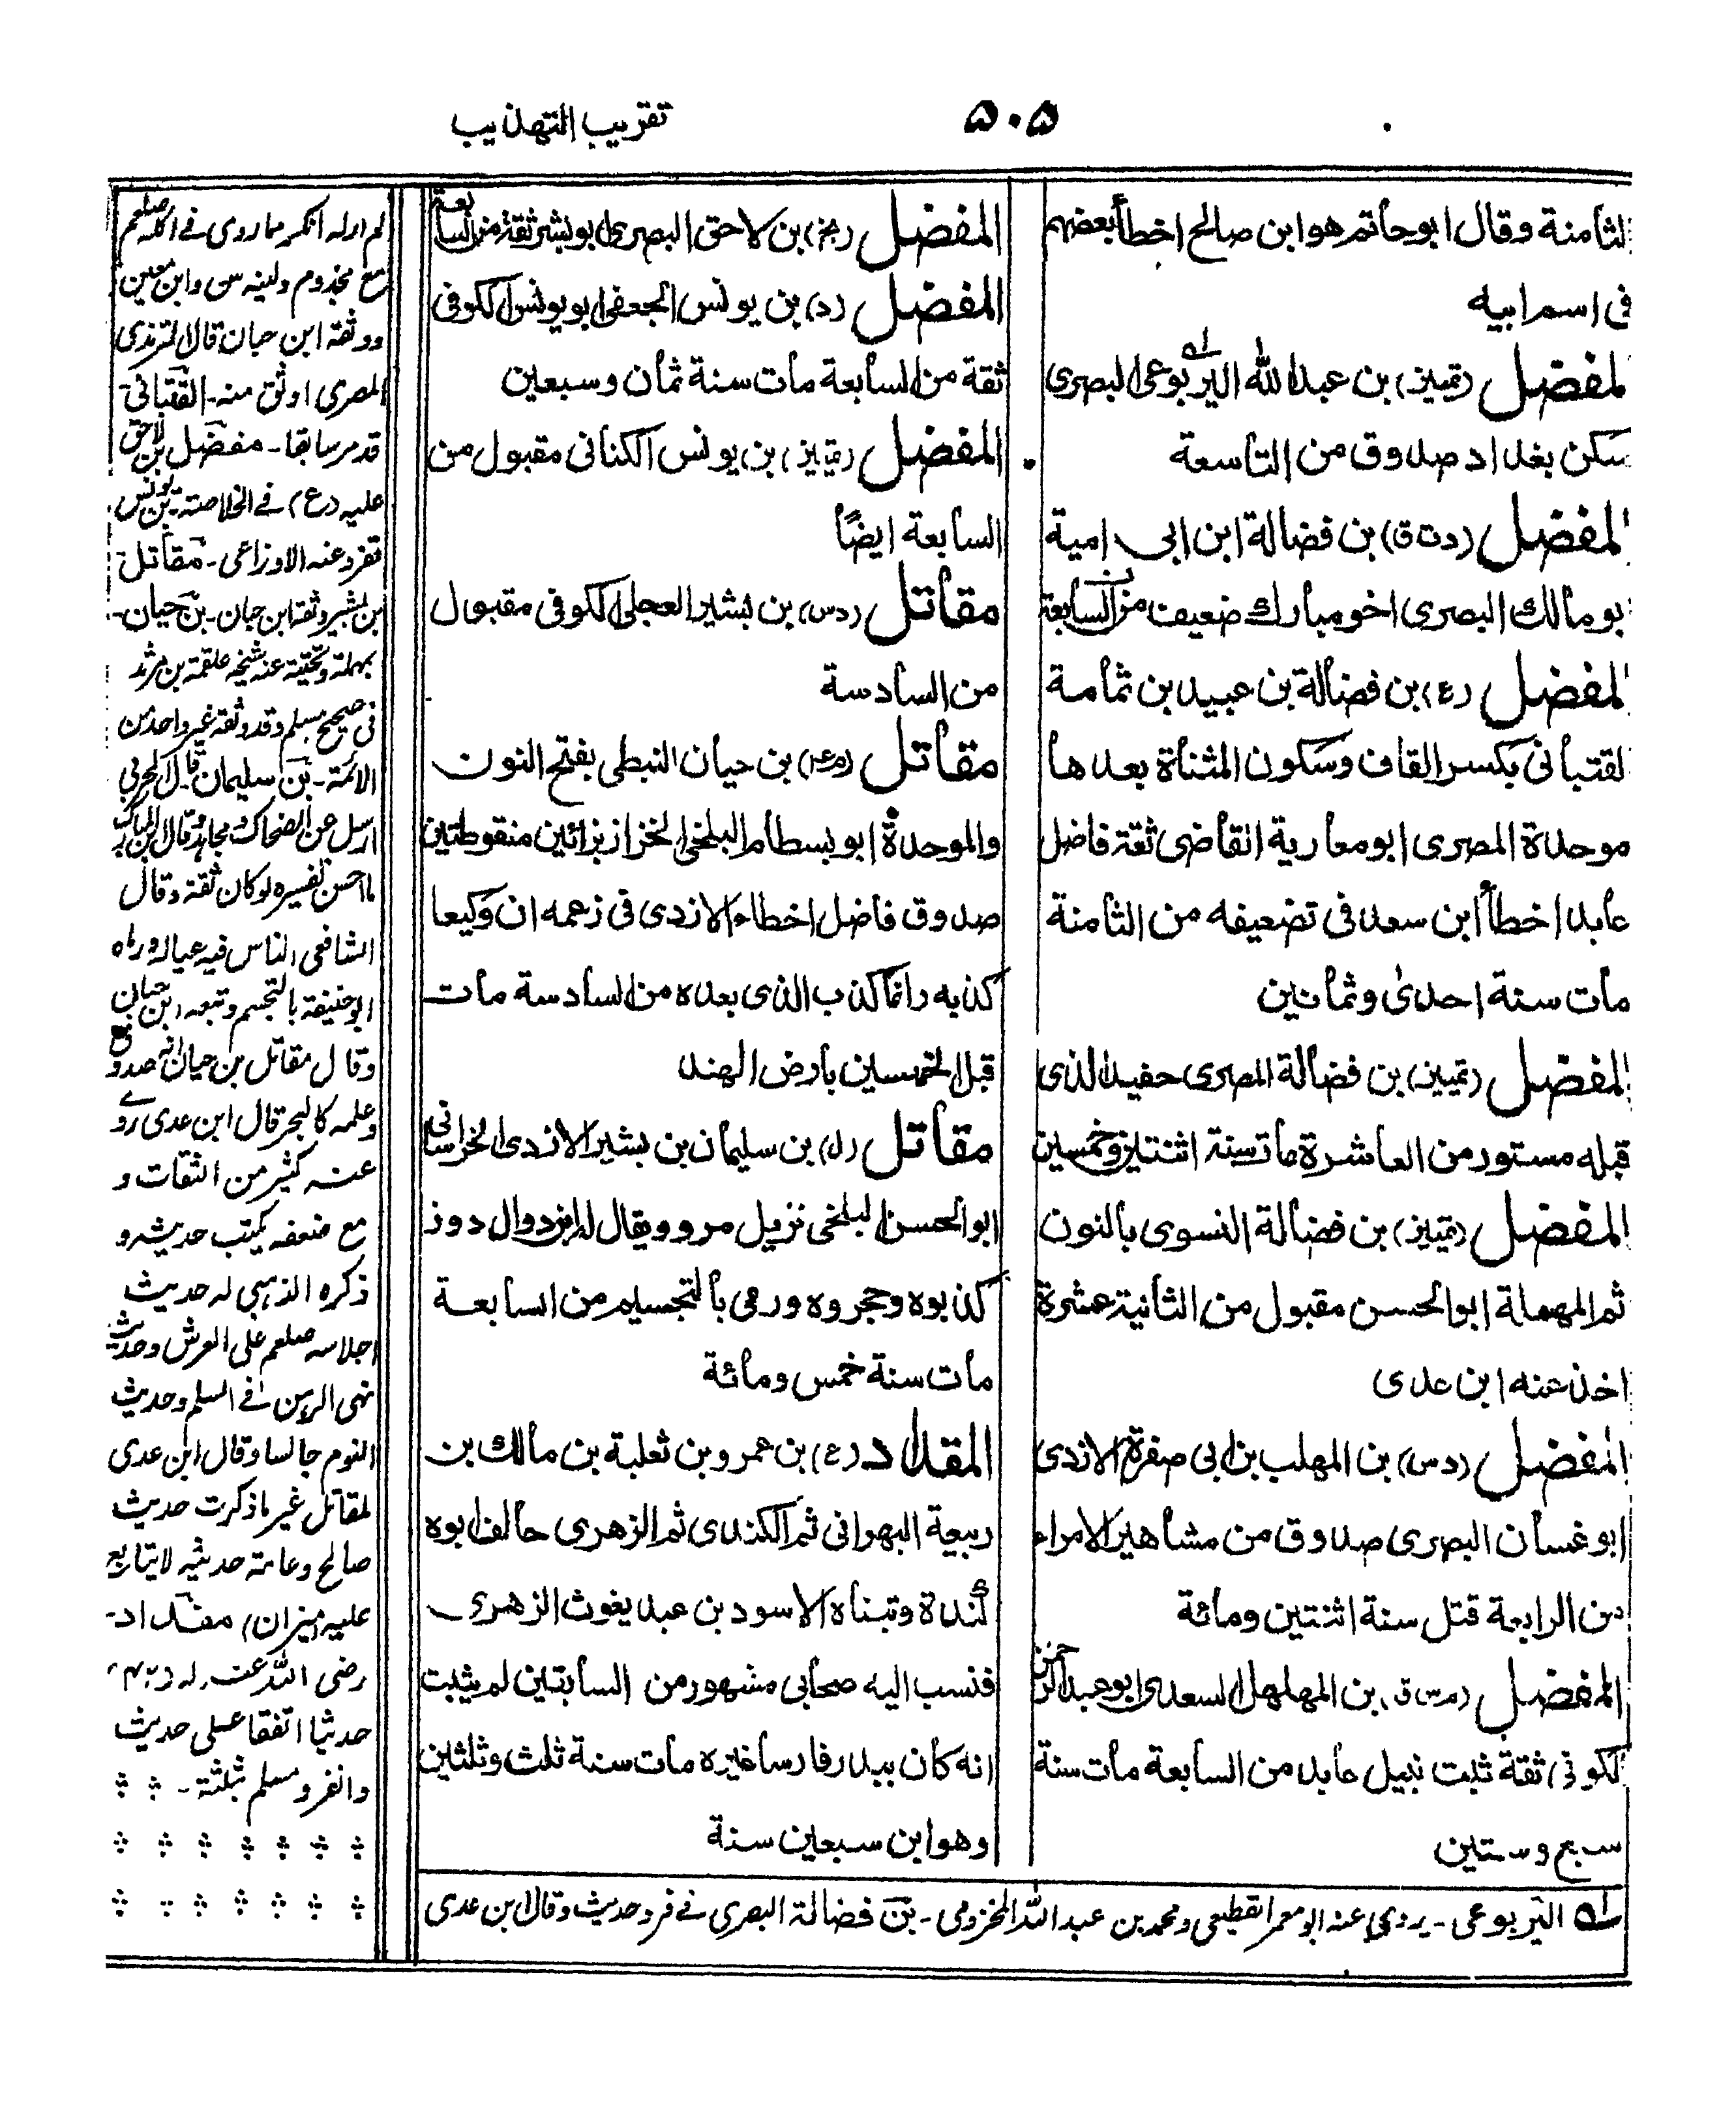 تقريب التهذيب
۵۰۵
الثامنة وقال ابوحاتم هو ابن صالح اخطأ بعضهم
فى اسم ابيه
المفضل (تمييز) بن عبد الله اليربوعى البصرى
سكن بغداد صدوق من التاسعة
المفضل (دت ق) بن فضالة ابن ابى امية
ابو مالك البصرى اخو مبارك ضعيف من السابعة
المفضل (ع) بن فضالة بن عبيد بن ثمامة
القتبانى بكسر القاف وسكون المثناة بعدها
موحدة المصرى ابو معاوية القاضى ثقة فاضل
عابد اخطأ ابن سعد فى تضعيفه من الثامنة
مات سنة احدى وثمانين
المفضل (تمييز) بن فضالة المصرى حفيد الذى
قبله مستور من العاشرة مات سنة اثنتين وخمسين
المفضل (تمييز) بن فضالة النسوى بالنون
ثم المهملة ابو الحسن مقبول من الثانية عشرة
اخذ عنه ابن عدى
المفضل (دس) بن المهلب بن ابى صفرة الازدى
ابو غسان البصرى صدوق من مشاهير الامراء
من الرابعة قتل سنة اثنتين ومائة
المفضل (م س ق) بن المهلهل السعدى ابو عبد الرحمن
الكوفى ثقة ثبت نبيل عابد من السابعة مات سنة
سبع وستين
المفضل (بخ) بن لاحق البصرى ابو بشر ثقة من السابعة
المفضل (د) بن يونس الجعفى ابو يونس الكوفى
ثقة من السابعة مات سنة ثمان وسبعين
المفضل (تمييز) بن يونس الكنانى مقبول من
السابعة ايضًا
مقاتل (دس) بن بشير العجلى الكوفى مقبول
من السادسة
مقاتل (م عه) بن حيان النبطى بفتح النون
والموحدة ابو بسطام البلخى الخزاز بزائين منقوطتين
صدوق فاضل اخطاء الازدى فى زعمه ان وكيعا
كذبه وانما كذب الذى بعده من السادسة مات
قبل الخمسين بارض الهند
مقاتل (ل) بن سليمان بن بشير الازدى الخراسانى
ابو الحسن البلخى نزيل مرو ويقال له ابن دوال دوز
كذبوه وهجروه ورمى بالتجسيم من السابعة
مات سنة خمس ومائة
المقداد (ع) بن عمرو بن ثعلبة بن مالك بن
ربيعة البهرانى ثم الكندى ثم الزهرى حالف ابوه
كندة وتبناه الاسود بن عبد يغوث الزهرى
فنسب اليه صحابى مشهور من السابقين لم يثبت
انه كان ببدر فارسا غيره مات سنة ثلث وثلثين
وهو ابن سبعين سنة
له اليربوعى - يروى عنه ابو معمر القطيعى ومحمد بن عبد الله المخزومى - بن فضالة البصرى فے فرد حديث وقال ابن عدى
لم ار له انكر مما روى فے اكله صلعم
مع مجذوم ولينه س وابن معين
ووثقة ابن حبان قال الترمذى
المصرى اوثق منه - القتبانى
قد مر سابقا - مفضل بن لاحق
عليه (ع) فے الخلاصة - بن يونس
تفرد عنه الاوزاعى - مقاتل
بن بشير وثقة ابن حبان - بن حيان -
بمهملة وتحتية عنه شيخه علقمة بن مرثد
فى صحيح مسلم وقد وثقه غير واحد من
الائمة - بن سليمان قال الحربى
ارسل عن الضحاك ومجاهد وقال ابن المبارك
ما احسن تفسيره لو كان ثقة وقال
الشافعى الناس فيه عياله ورماه
ابو حنيفة بالتجسيم وتبعه ابن حبان
وقال مقاتل بن حيان انه صدوق
وعلمه كالبحر قال ابن عدى روے
عنه كثير من الثقات و
مع ضعفه يكتب حديثه و
ذكره الذهبى له حديث
اجلاسه صلعم على العرش وحديث
نهى الرهن فے السلم وحديث
النوم جالسا وقال ابن عدى
لمقاتل غير ما ذكرت حديث
صالح وعامة حديثه لا يتابع
عليه (ميزان) مقداد -
رضى الله عنه له (۴۲)
حديثا اتفقا على حديث
وانفرد مسلم بثلثة -